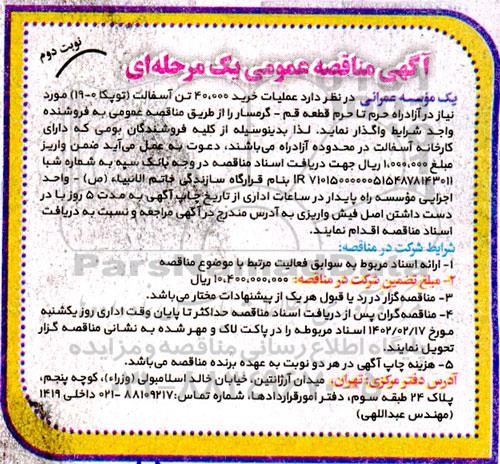 نوبت دوم
آگهی مناقصه عمومی یک مرحله‌ای
یک مؤسسه عمرانی در نظر دارد عملیات خرید ۴۰،۰۰۰ تن آسفالت (توپکا ۰-۱۹) مورد
نیاز در آزادراه حرم تا حرم قطعه قم - گرمسار را از طریق مناقصه عمومی به فروشنده
واجد شرایط واگذار نماید. لذا بدینوسیله از کلیه فروشندگان بومی که دارای
کارخانه آسفالت در محدوده آزادراه می‌باشند، دعوت به عمل می‌آید ضمن واریز
مبلغ ۱،۰۰۰،۰۰۰ ریال جهت دریافت اسناد مناقصه در وجه بانک سپه به شماره شبا
IR ۷۱۰۱۵۰۰۰۰۰۰۵۱۵۴۸۷۸۱۴۳۰۱۱ بنام قرارگاه سازندگی خاتم الانبیاء (ص) - واحد
اجرایی مؤسسه راه پایدار در ساعات اداری از تاریخ چاپ آگهی به مدت ۵ روز با در
دست داشتن اصل فیش واریزی به آدرس مندرج در آگهی مراجعه و نسبت به دریافت
اسناد مناقصه اقدام نمایند.
شرایط شرکت در مناقصه:
۱- ارائه اسناد مربوط به سوابق فعالیت مرتبط با موضوع مناقصه
۲- مبلغ تضمین شرکت در مناقصه: ۱۰،۴۰۰،۰۰۰،۰۰۰ ریال
۳- مناقصه‌گزار در رد یا قبول هر یک از پیشنهادات مختار می‌باشد.
۴- مناقصه‌گران پس از دریافت اسناد مناقصه حداکثر تا پایان وقت اداری روز یکشنبه
مورخ ۱۴۰۲/۰۲/۱۷ اسناد مربوطه را در پاکت لاک و مهر شده به نشانی مناقصه گزار
تحویل نمایند.
۵- هزینه چاپ آگهی در هر دو نوبت به عهده برنده مناقصه می‌باشد.
آدرس دفتر مرکزی: تهران، میدان آرژانتین، خیابان خالد اسلامبولی (وزراء)، کوچه پنجم،
پلاک ۲۴ طبقه سوم، دفتر امور قراردادها، شماره تماس: ۸۸۱۰۹۲۱۷-۰۲۱ داخلی ۱۴۱۹
(مهندس عبداللهی)